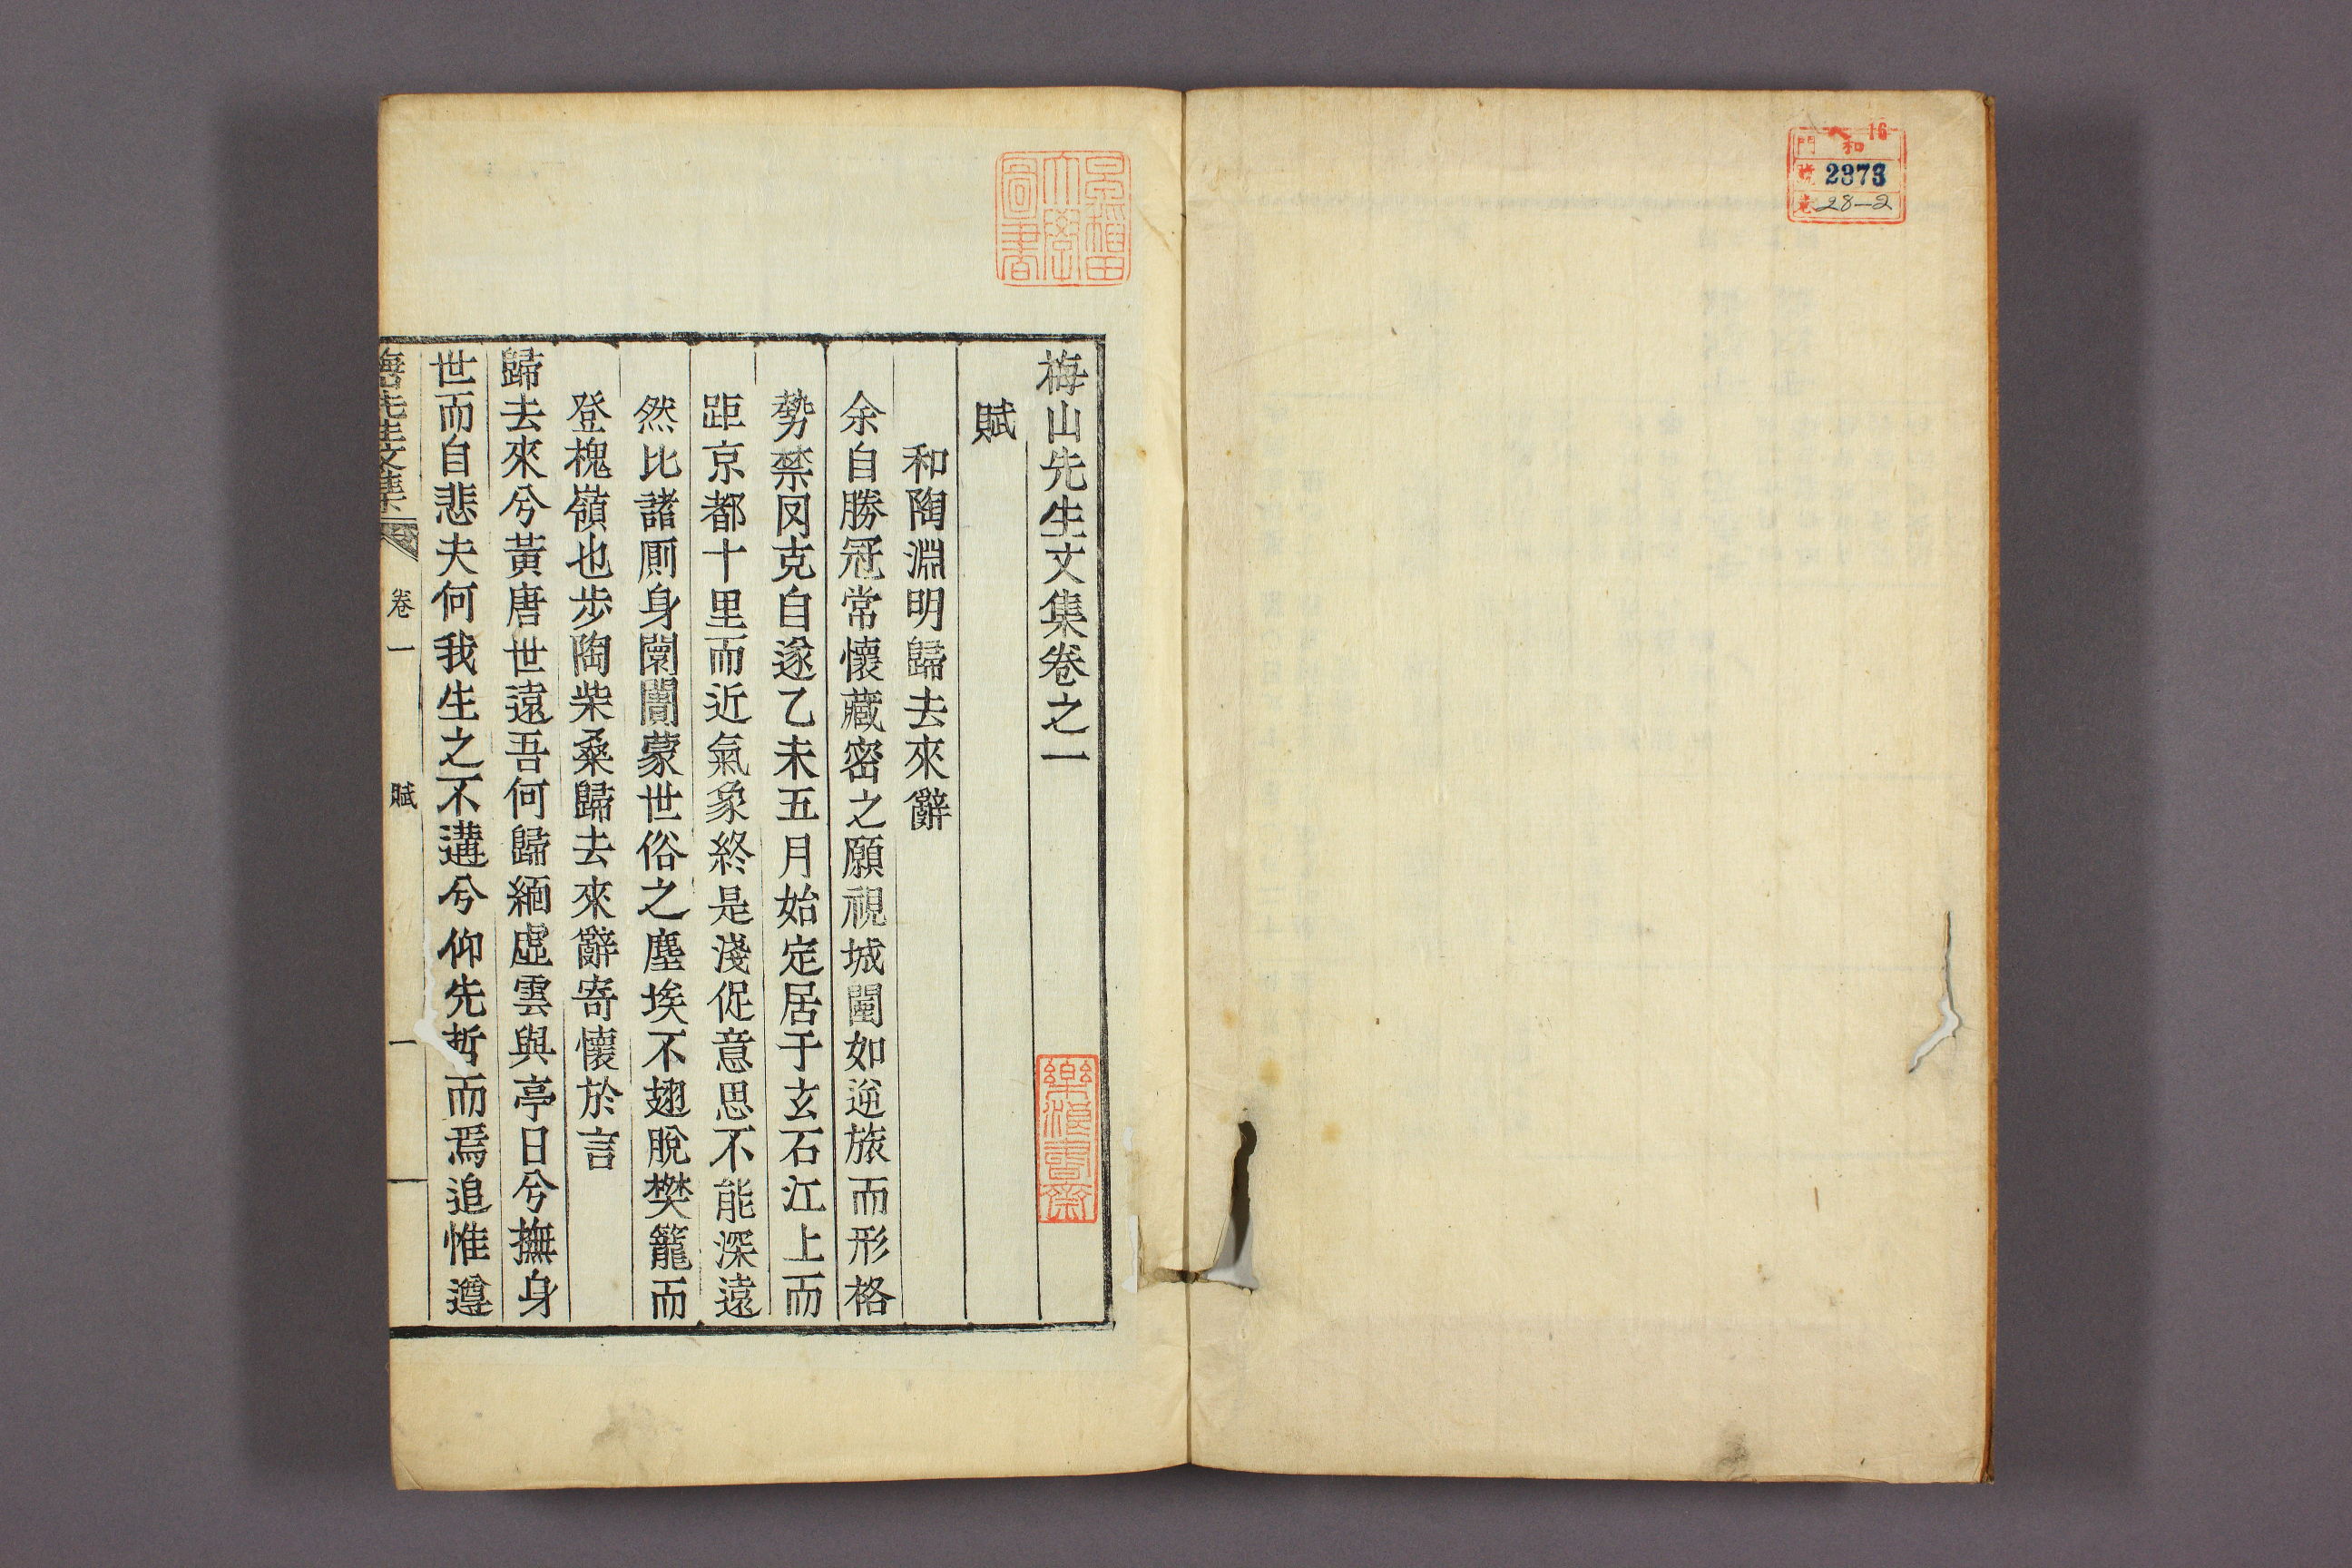 16
和
門
號
2873
28—2
早稲田
大學
圖書
梅山先生文集卷之一
賦
和陶淵明歸去來辭
余自勝冠常懷藏密之願視城闉如逆旅而形格
勢禁罔克自遂乙未五月始定居于玄石江上而
距京都十里而近氣象終是淺促意思不能深遠
然比諸厠身闤闠蒙世俗之塵埃不翅脫樊籠而
登槐嶺也步陶柴桑歸去來辭寄懷於言
歸去來兮黃唐世遠吾何歸緬虛雲與亭日兮撫身
世而自悲夫何我生之不遘兮仰先哲而焉追惟遵
梅山先生文集
卷一
賦
一